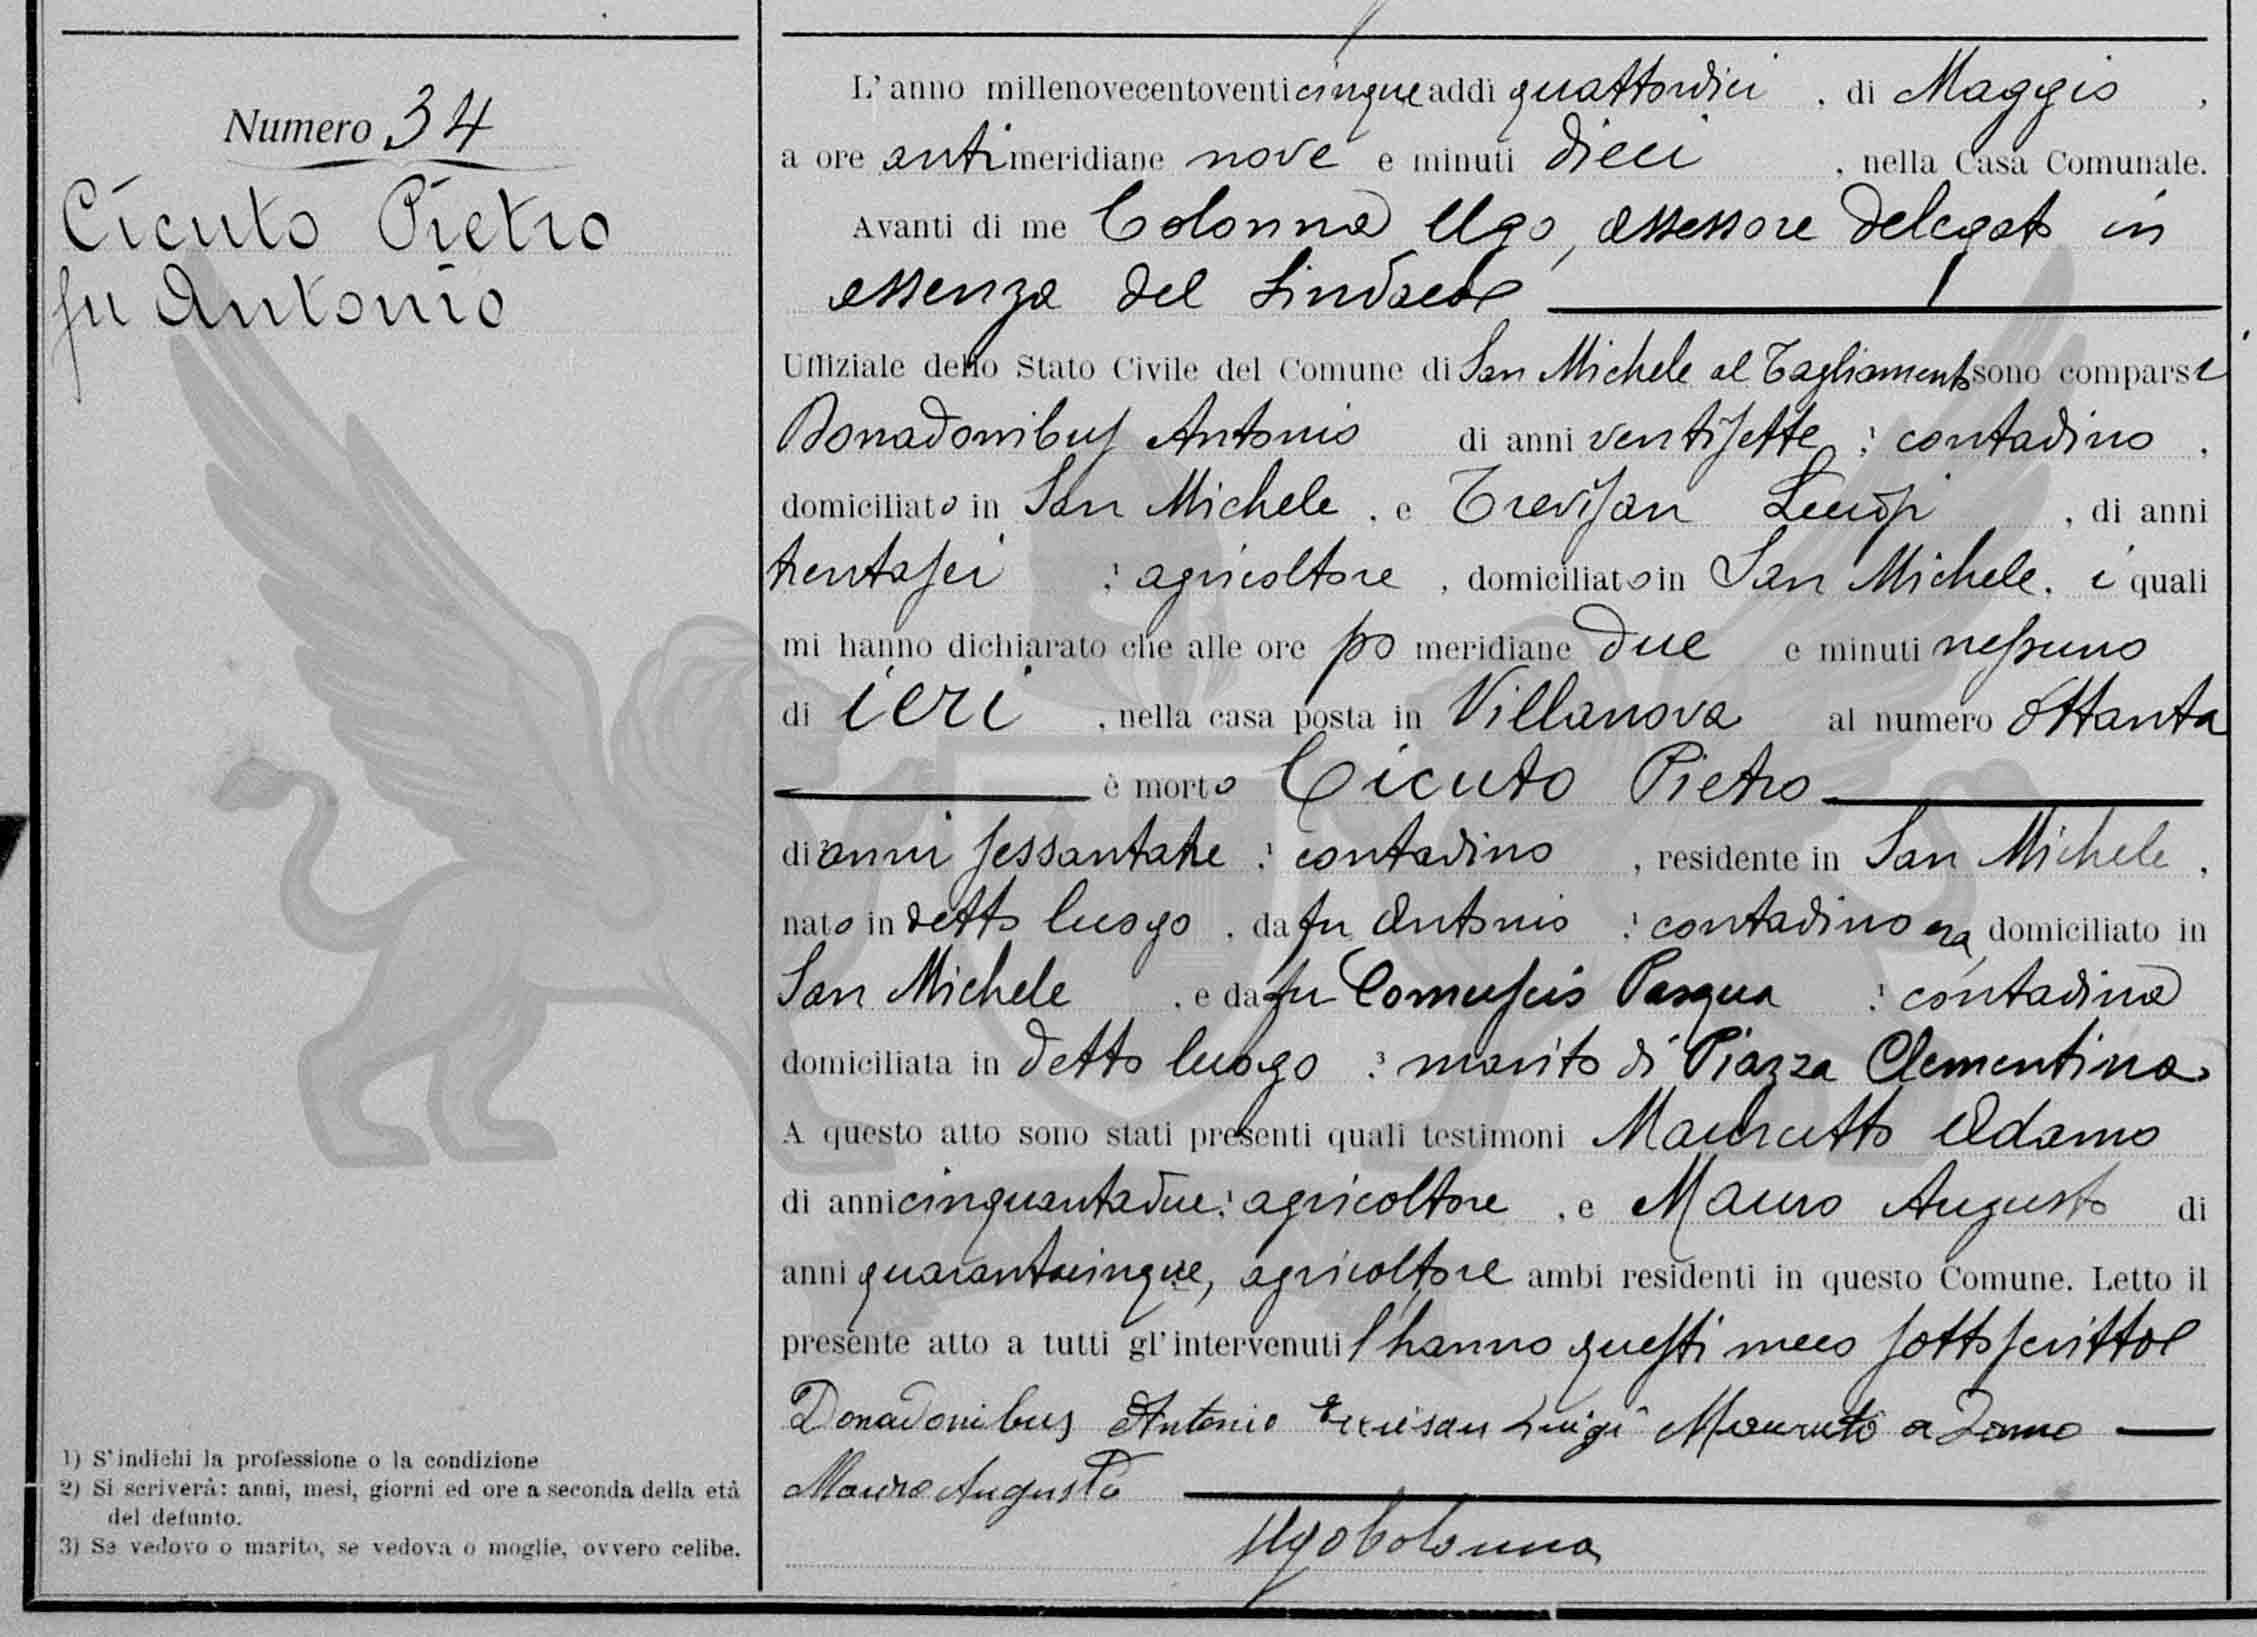 Numero 34
Cicuto Pietro
fu Antonio
1) S'indichi la professione o la condizione
2) Si scriverà: anni, mesi, giorni ed ore a seconda della età
del defunto.
3) Se vedovo o marito, se vedova o moglie, ovvero celibe.
L'anno millenovecentoventicinque addì quattordici, di Maggio,
a ore antimeridiane nove e minuti dieci, nella Casa Comunale.
Avanti di me Colonna Ugo, assessore delegato in
assenza del Sindaco
Uffiziale dello Stato Civile del Comune di San Michele al Tagliamento sono comparsi
Donadonibus Antonio di anni ventisette, contadino,
domiciliato in San Michele, e Trevisan Luigi, di anni
trentasei, agricoltore, domiciliato in San Michele, i quali
mi hanno dichiarato che alle ore po meridiane due e minuti nessuno
di ieri, nella casa posta in Villanova al numero ottanta
è morto Cicuto Pietro
di anni sessantatre, contadino, residente in San Michele,
nato in detto luogo, da fu Antonio, contadino era domiciliato in
San Michele, e da fu Pasqua, contadina
domiciliata in detto luogo, marito di Piazza Clementina.
A questo atto sono stati presenti quali testimoni Maurutto Adamo
di anni cinquantadue, agricoltore, e Mauro Augusto di
anni quarantacinque, agricoltore ambi residenti in questo Comune. Letto il
presente atto a tutti gl'intervenuti l'hanno questi meco sottoscritto
Donadonibus Antonio Trevisan Luigi Mauruto Adamo
Mauro Augusto
Ugo Colonna